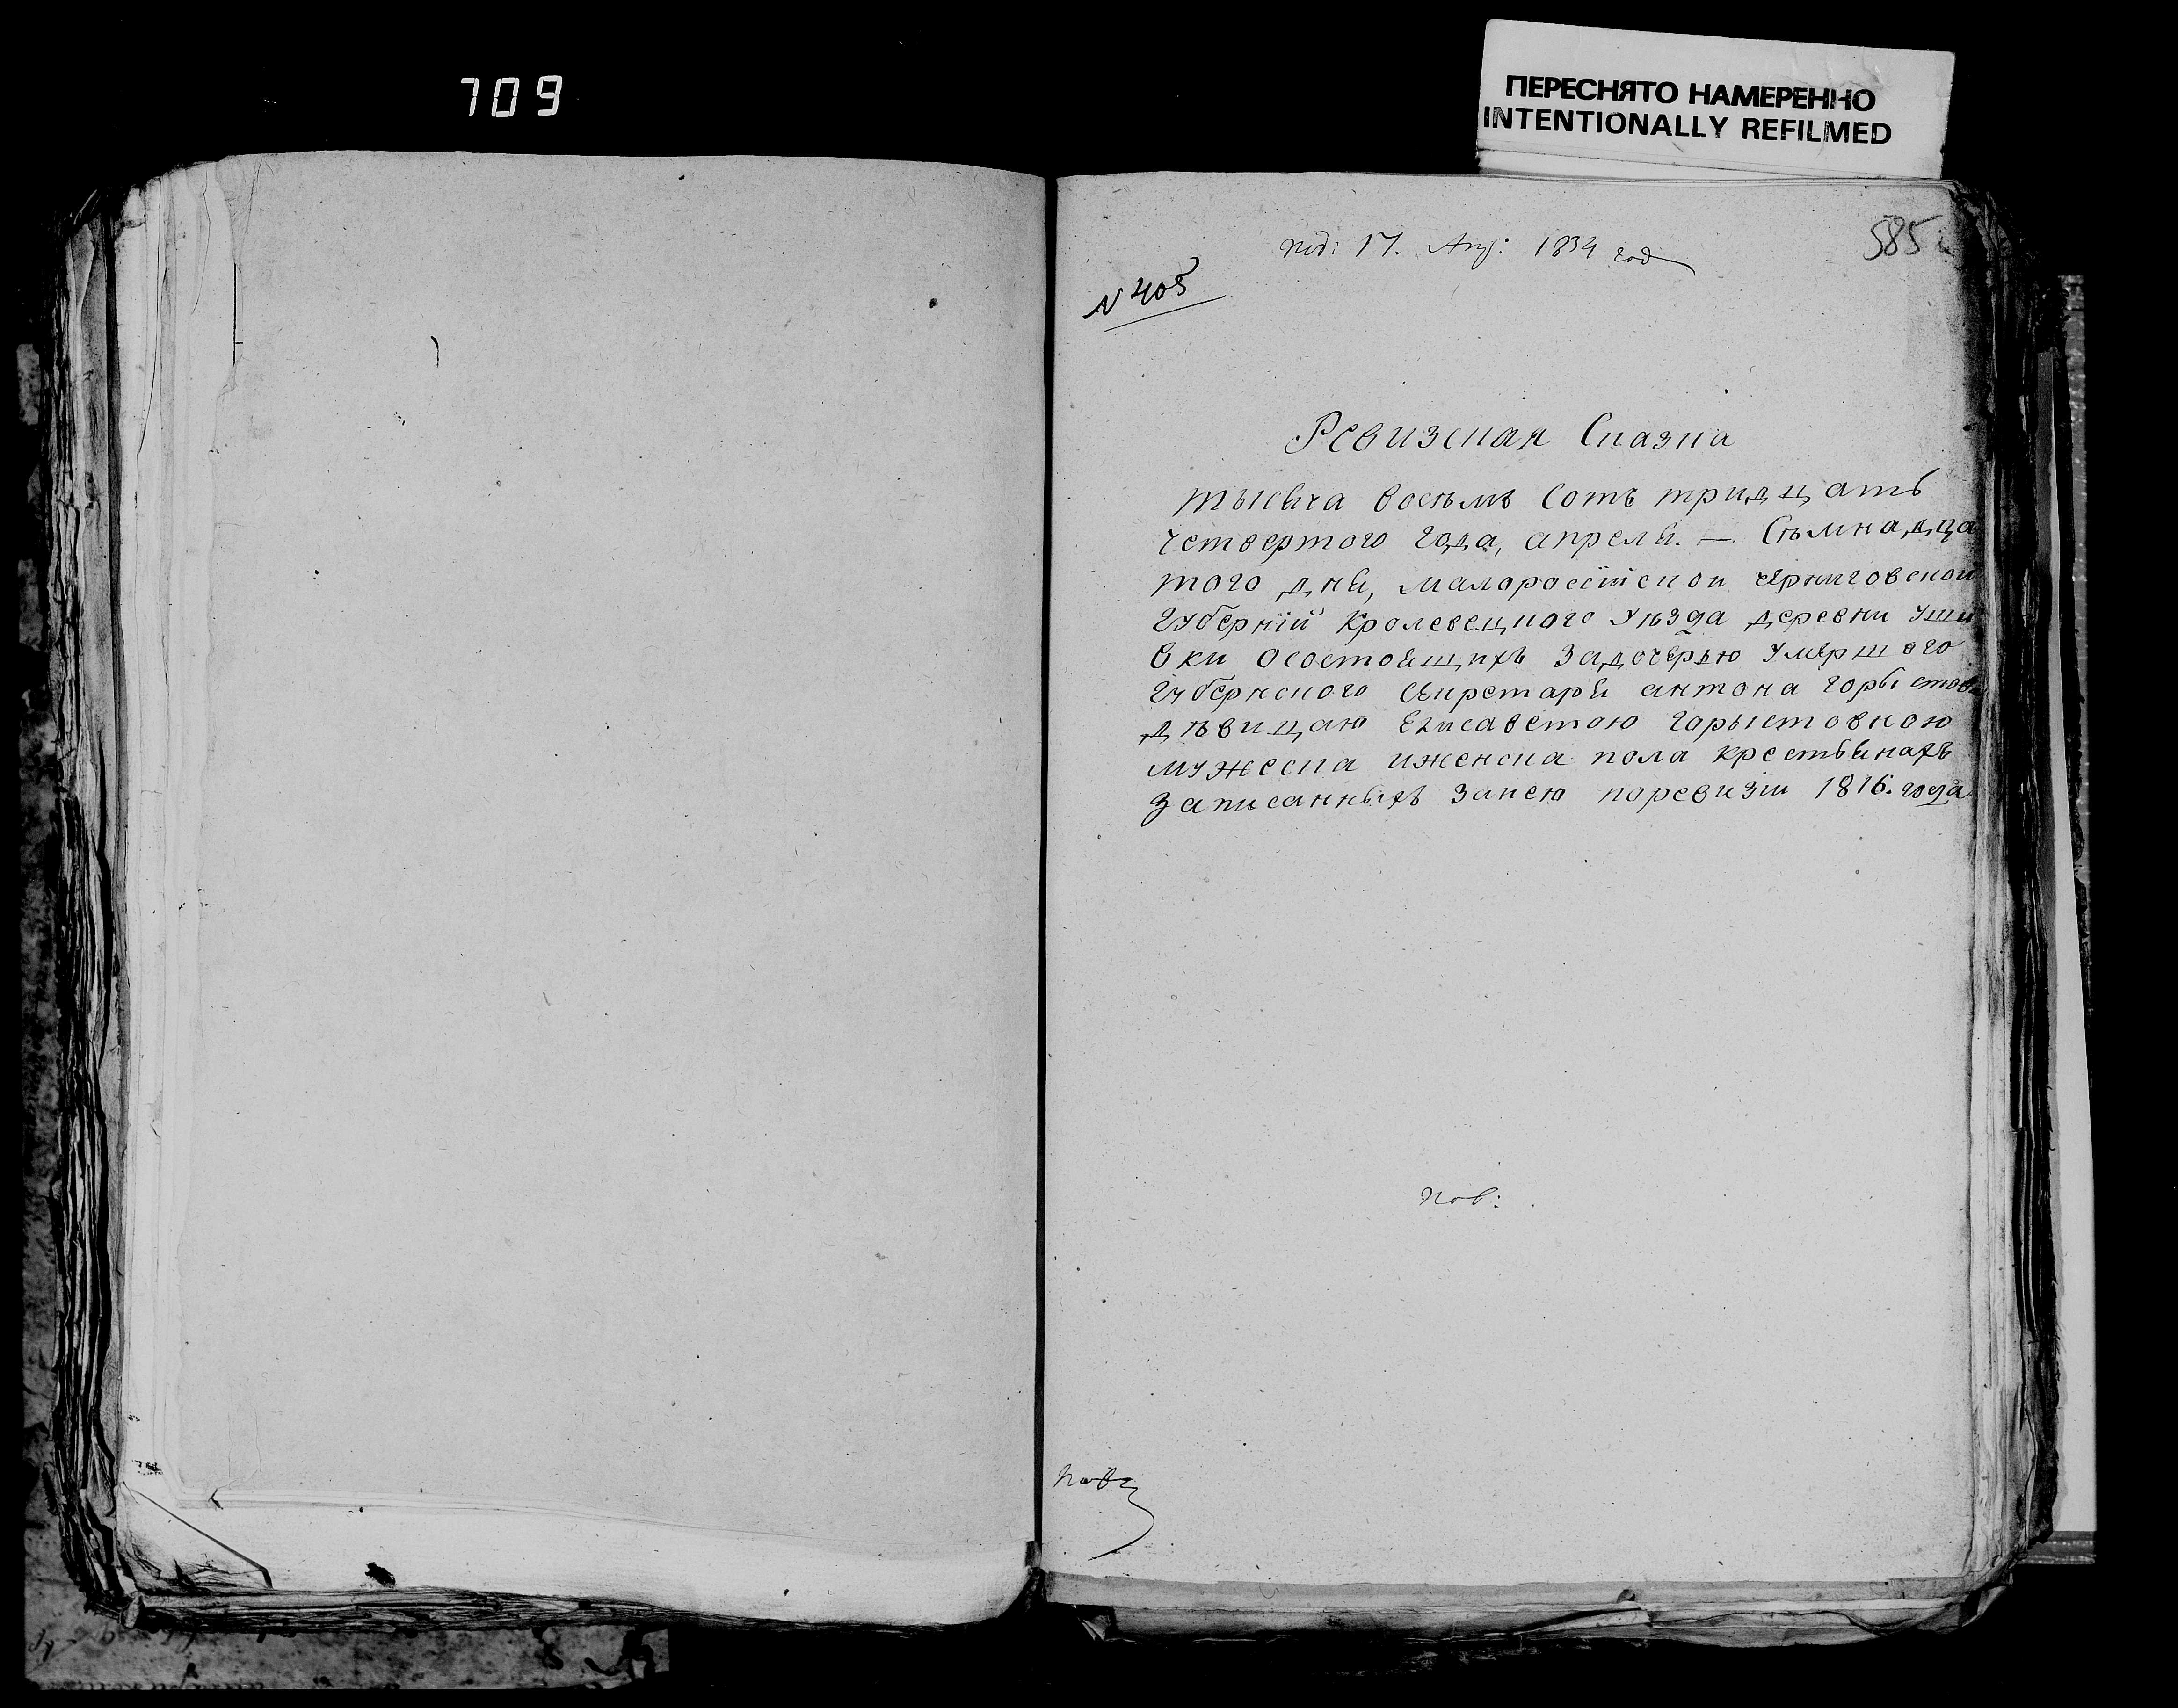 709
ПЕРЕСНЯТО НАМЕРЕННО
INTENTIONALLY REFILMED
585
под: 17. Апр: 1834 год
N 405
Ревизская Сказка
тысеча восьмъ сотъ тридцать
четвертого года, апреля. — Семнадца
того дня, малоросійской черниговской
Губерніи Кролевецкого Уѣзда деревни Уши
вки осостоящихъ задочерью умершого
Губернского Секретаря антона горыстов
дѣвицаю Елисаветою горыстовною
мужеска иженска пола крестьянахъ
записанныхъ занею поревизіи 1816. года
пов: